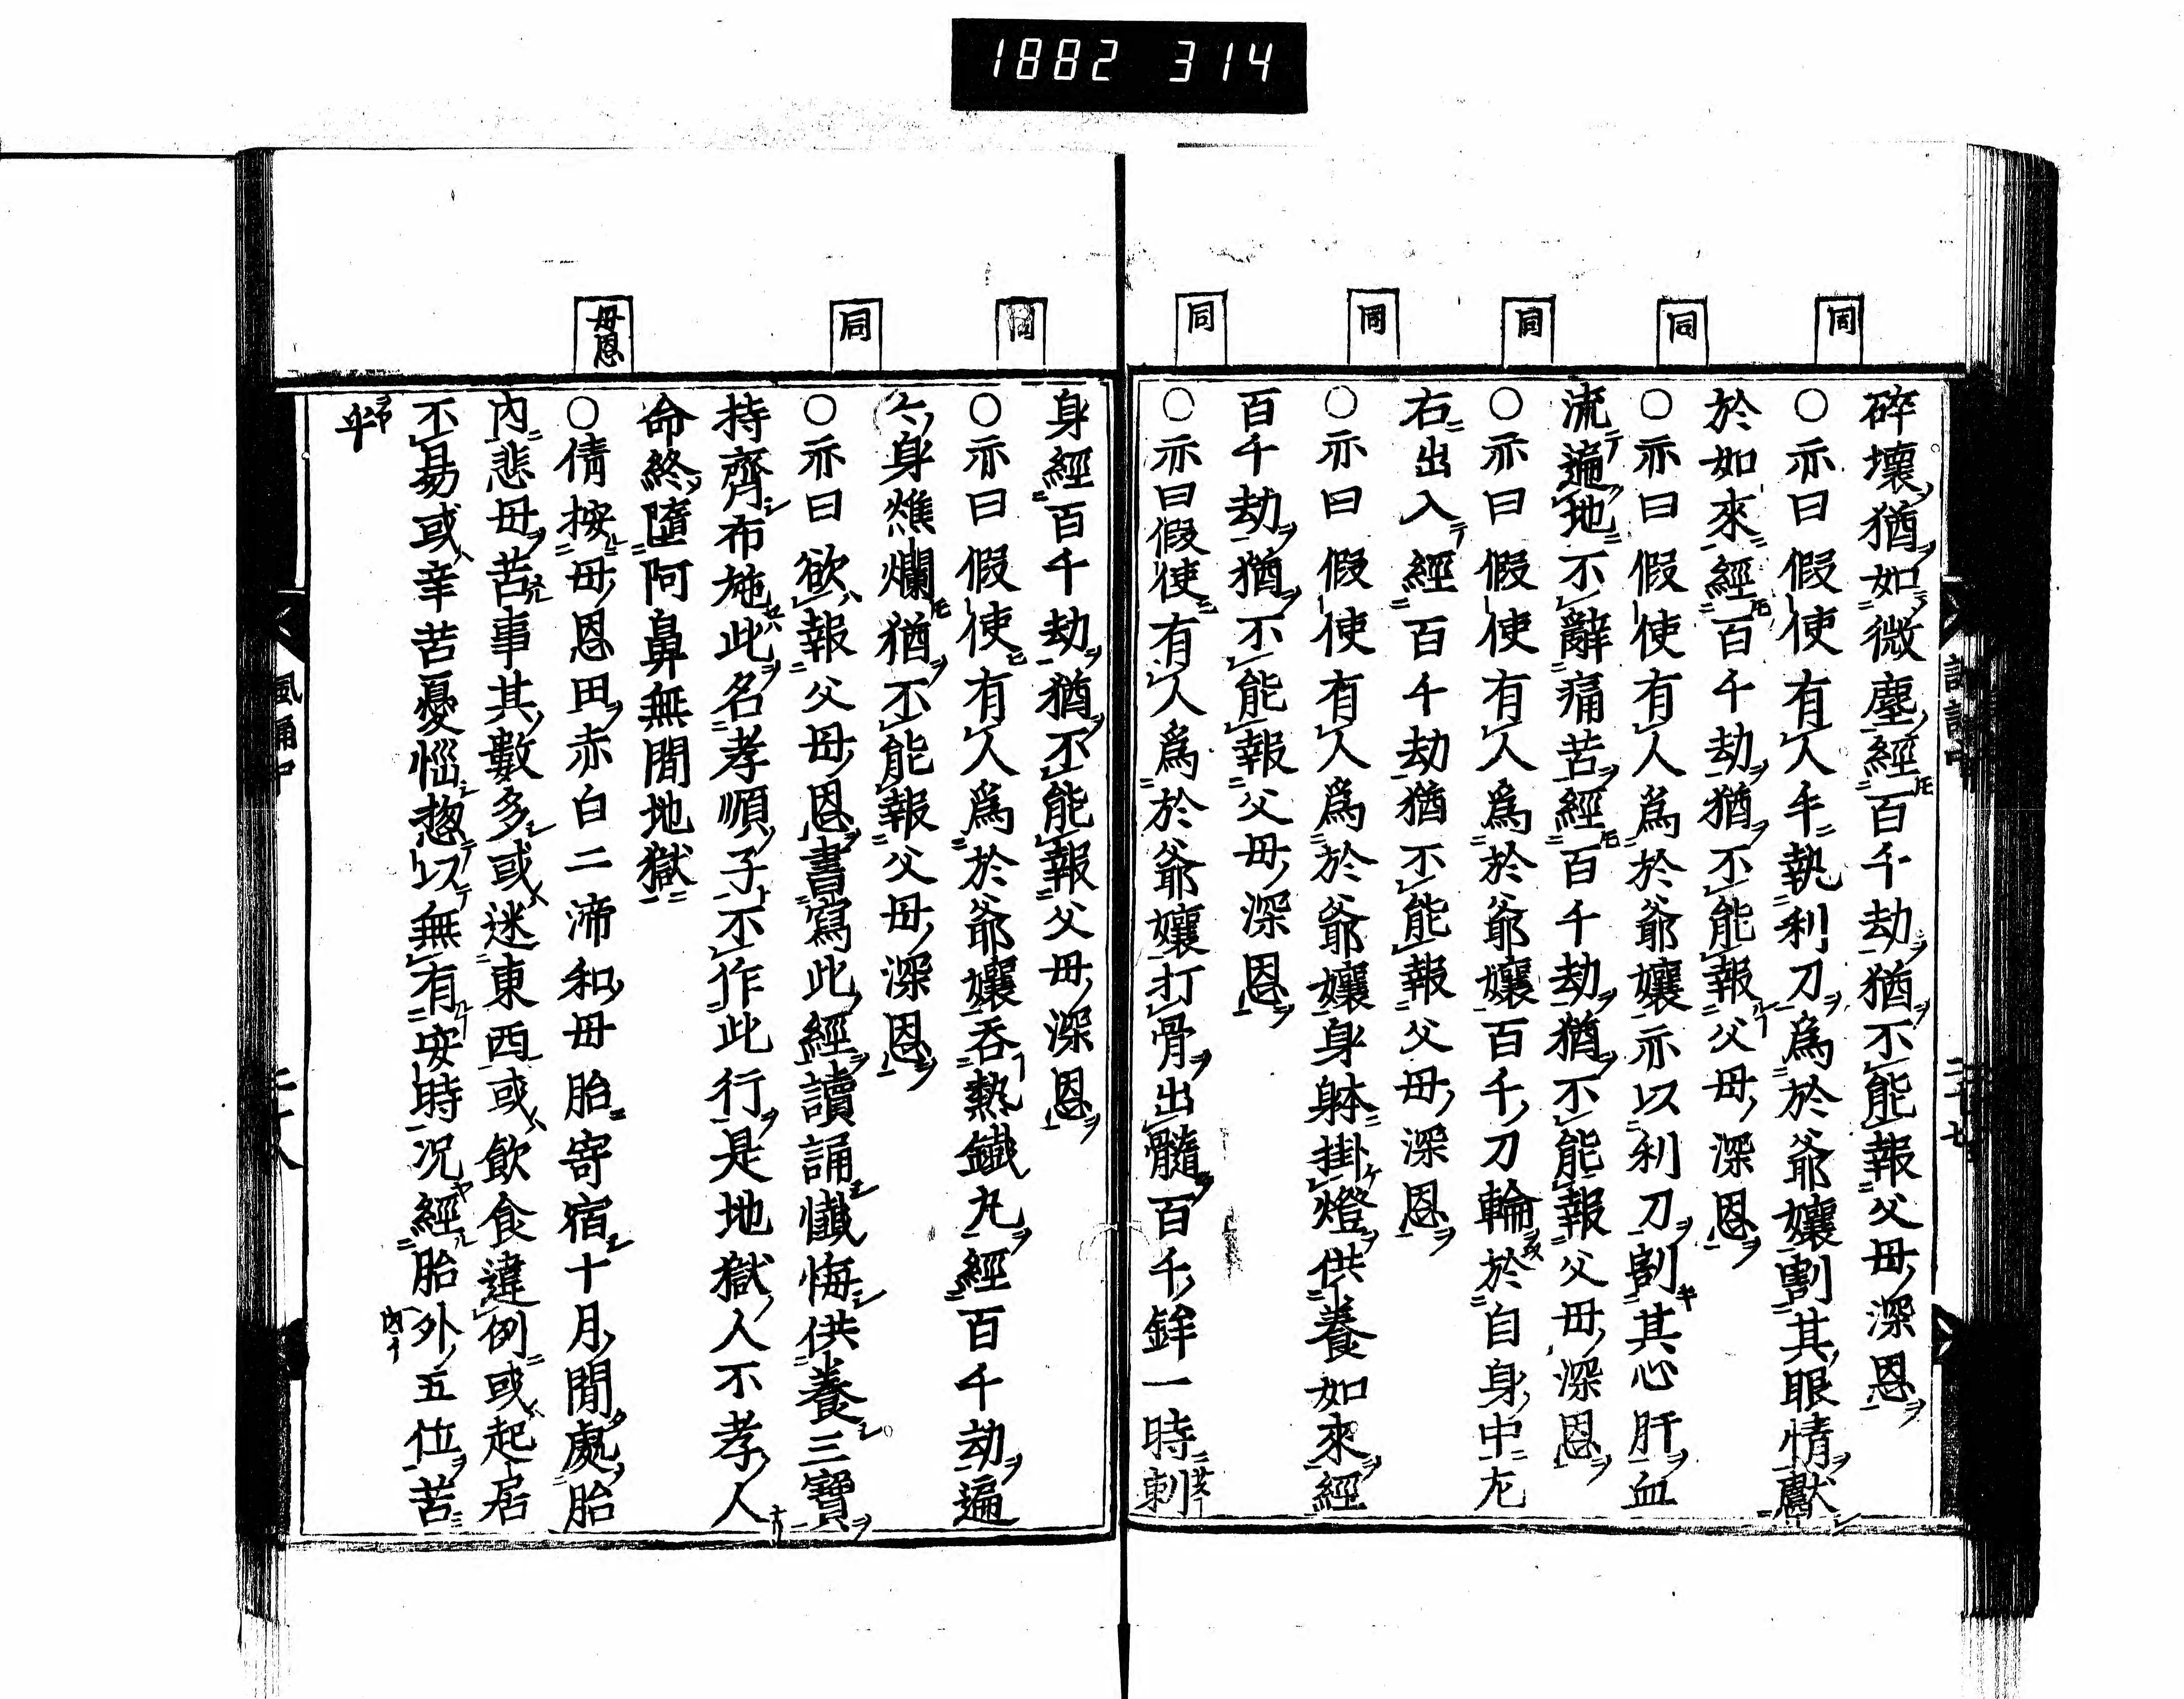 1882 314
同
同
同
同
同
碎壞猶如微塵經百千劫猶不能報父母深恩
○亦曰假使有人手執利刀爲於爺孃割其眼情獻
於如來經百千劫猶不能報父母深恩
○亦曰假使有人爲於爺孃亦以利刀割其心肝血
流遍地不辭痛苦經百千劫猶不能報父母深恩
○亦曰假使有人爲於爺孃百千刀輪於自身中左
右出入經百千劫猶不能報父母深恩
○亦曰假使有人爲於爺孃身躰掛燈供養如來經
百千劫猶不能報父母深恩
○亦曰假使有人爲於爺孃打骨出髓百千鉾一時刺
同
同
母恩
身經百千劫猶不能報父母深恩
○亦曰假使有人爲於爺孃吞熱鐵丸經百千劫遍
身燋爛猶不能報父母深恩
○亦曰欲報父母恩書寫此經讀誦懺悔供養三寶
持齊布施此名孝順子不作此行是地獄人不孝人
命終墮阿鼻無間地獄
○倩按母恩田赤白二渧和母胎寄宿十月間處胎
內悲母苦事其數多或迷東西或飲食違例或起居
不易或辛苦憂惱惣以無有安時况經胎外五位苦
乎
風誦中